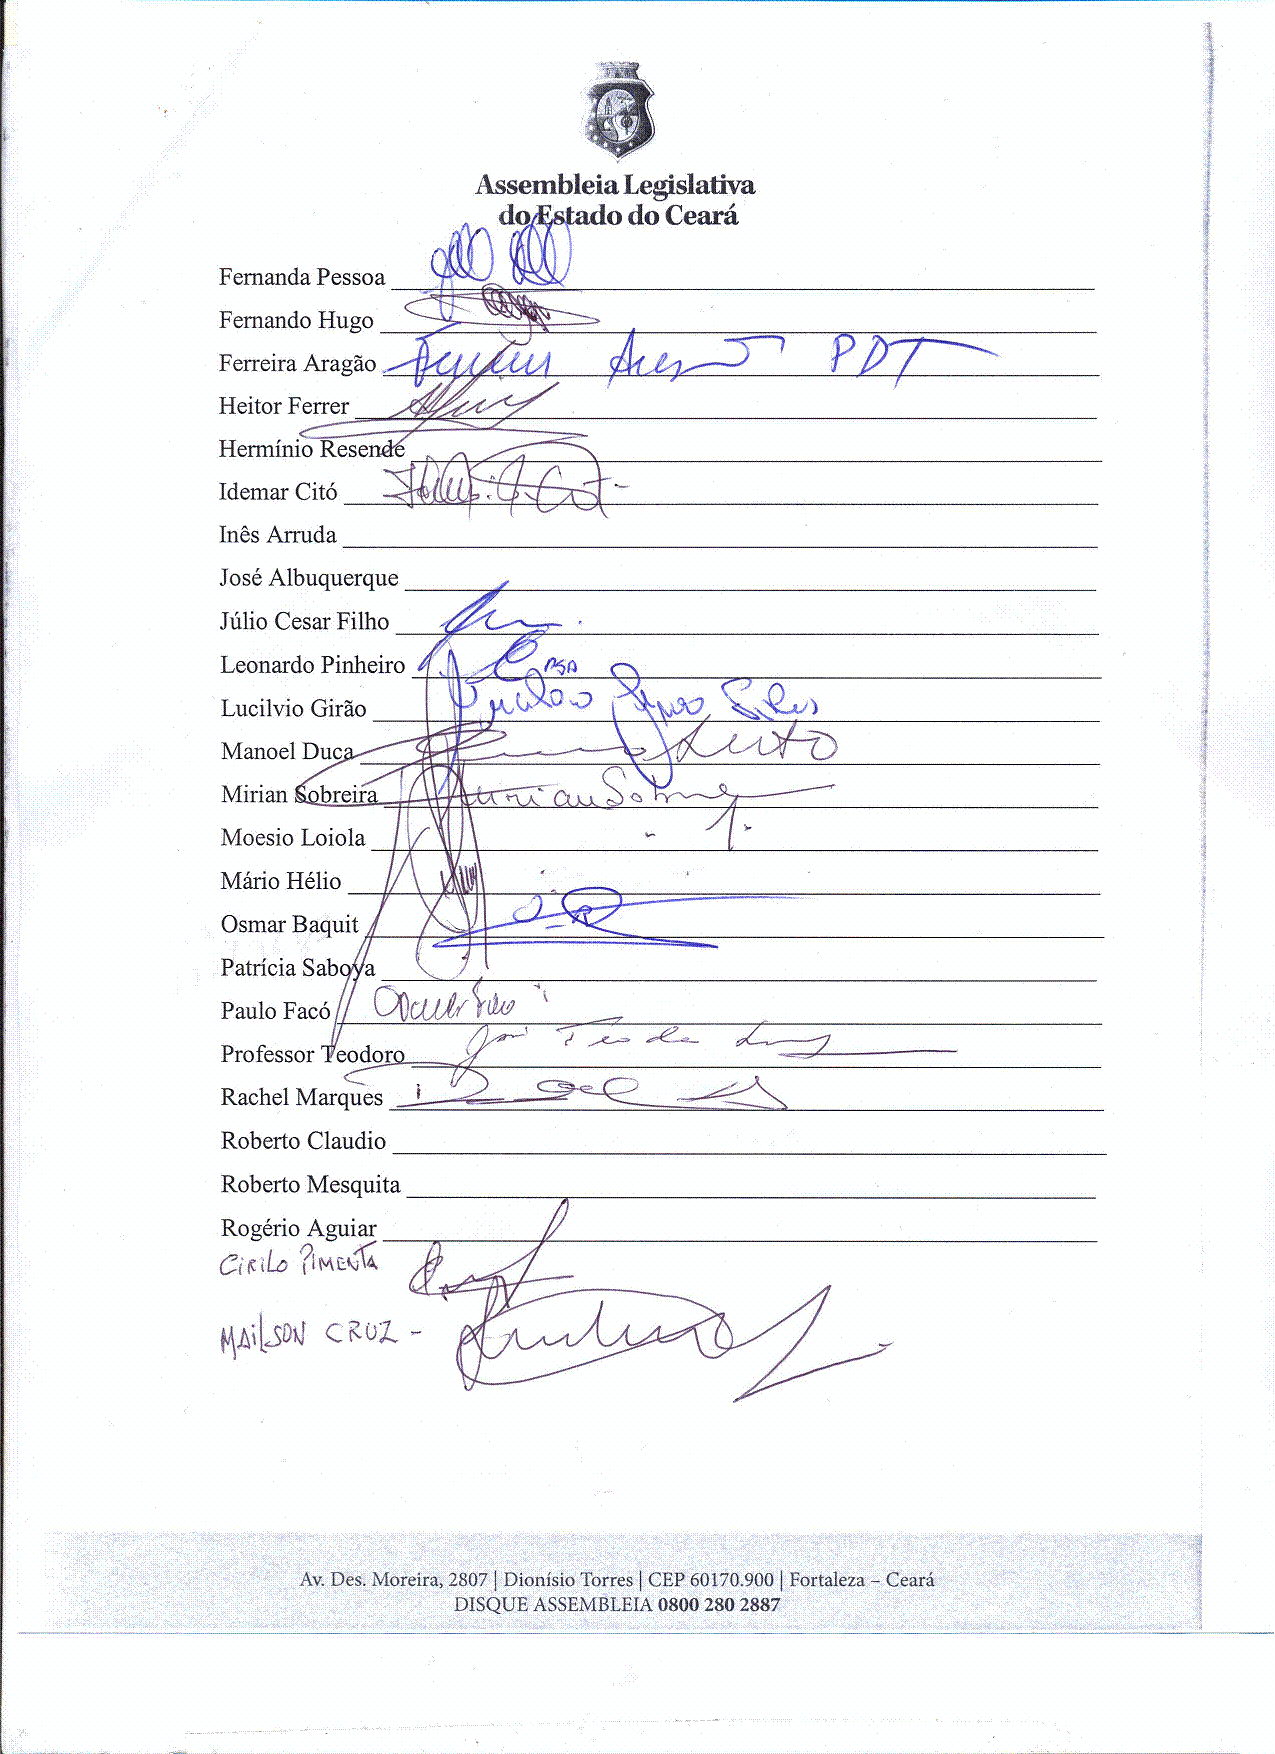 Assembleia Legislativa
do Estado do Ceará
Fernanda Pessoa
Fernando Hugo
Ferreira Aragão PDT
Heitor Ferrer
Hermínio Resende
Idemar Citó
Inês Arruda
José Albuquerque
Júlio Cesar Filho
Leonardo Pinheiro
Lucilvio Girão
Manoel Duca
Mirian Sobreira Mirian Sobreira
Moesio Loiola
Mário Hélio
Osmar Baquit
Patrícia Saboya
Paulo Facó
Professor Teodoro
Rachel Marques
Roberto Claudio
Roberto Mesquita
Rogério Aguiar
CIRILO PIMENTA
MAILSON CRUZ -
Av. Des. Moreira, 2807 | Dionísio Torres | CEP 60170.900 | Fortaleza – Ceará
DISQUE ASSEMBLEIA 0800 280 2887